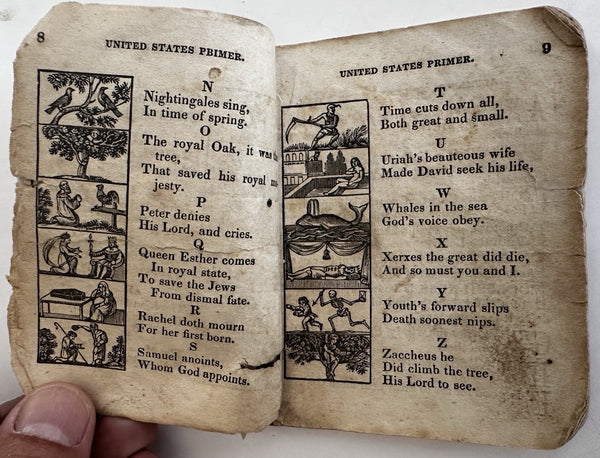 8
UNITED STATES PBIMER.
N
Nightingales sing,
In time of spring.
O
The royal Oak, it was the
tree,
That saved his royal ma-
jesty.
P
Peter denies
His Lord, and cries.
Q
Queen Esther comes
In royal state,
To save the Jews
From dismal fate.
R
Rachel doth mourn
For her first born.
S
Samuel anoints,
Whom God appoints.
UNITED STATES PRIMER.
9
T
Time cuts down all,
Both great and small.
U
Uriah's beauteous wife
Made David seek his life,
W
Whales in the sea
God's voice obey.
X
Xerxes the great did die,
And so must you and I.
Y
Youth's forward slips
Death soonest nips.
Z
Zaccheus he
Did climb the tree,
His Lord to see.